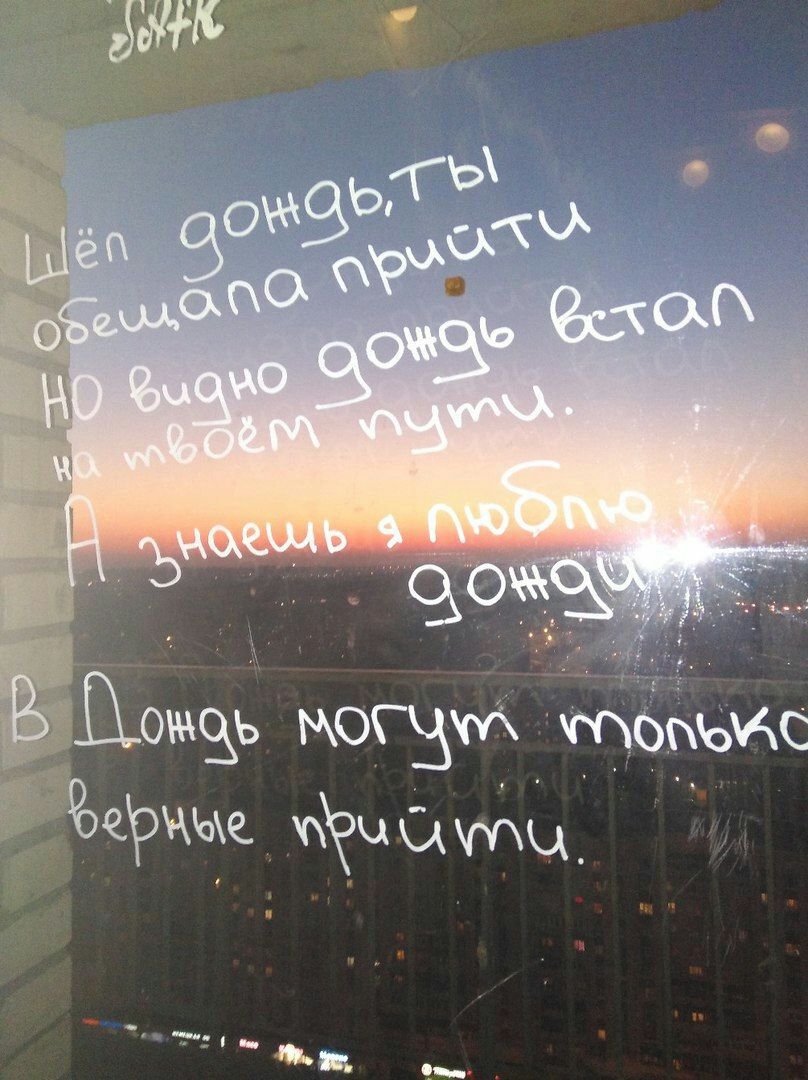 Шёл дождь, ты
обещала прийти
НО видно дождь встал
на твоём пути.
А знаешь я люблю
дожди
В Дождь могут только
верные прийти.